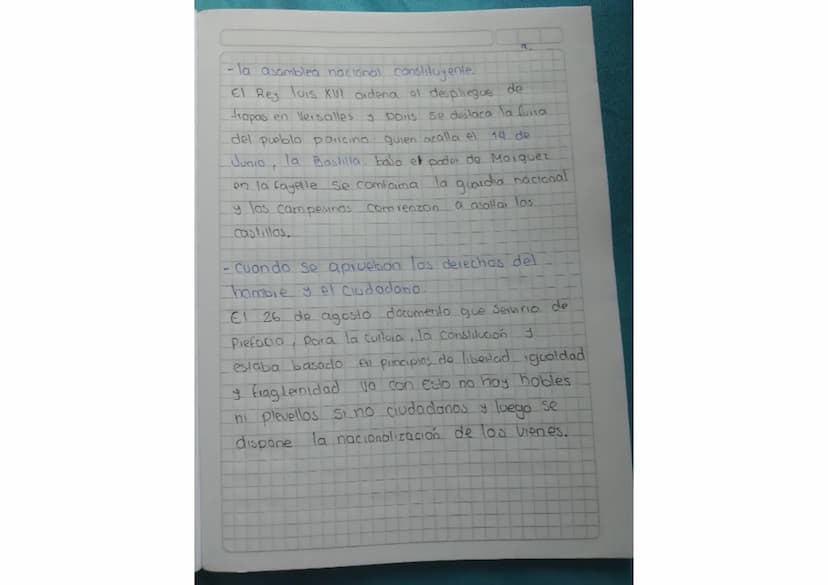 - la asamblea nacional constituyente.
El Rey luis XVI ordena al despliegue de
tropas en Versalles y paris se destaca la furia
del pueblo paricino quien acalla el 14 de
Junio, la Bastilla bajo el poder de Marquez
en la fayelle se comforma la guardia nacional
y los campesinos comienzan a asaltar los
castillos.
- Cuando se aprueban los derechos del
hombre y el ciudadano.
El 26 de agosto documento que serviria de
Prefacio, para la cultura, la constitución y
estaba basado en principios de libertad igualdad
y fragternidad Va con esto no hay nobles
ni plevellos si no ciudadanos y luego se
dispone la nacionalización de los vienes.